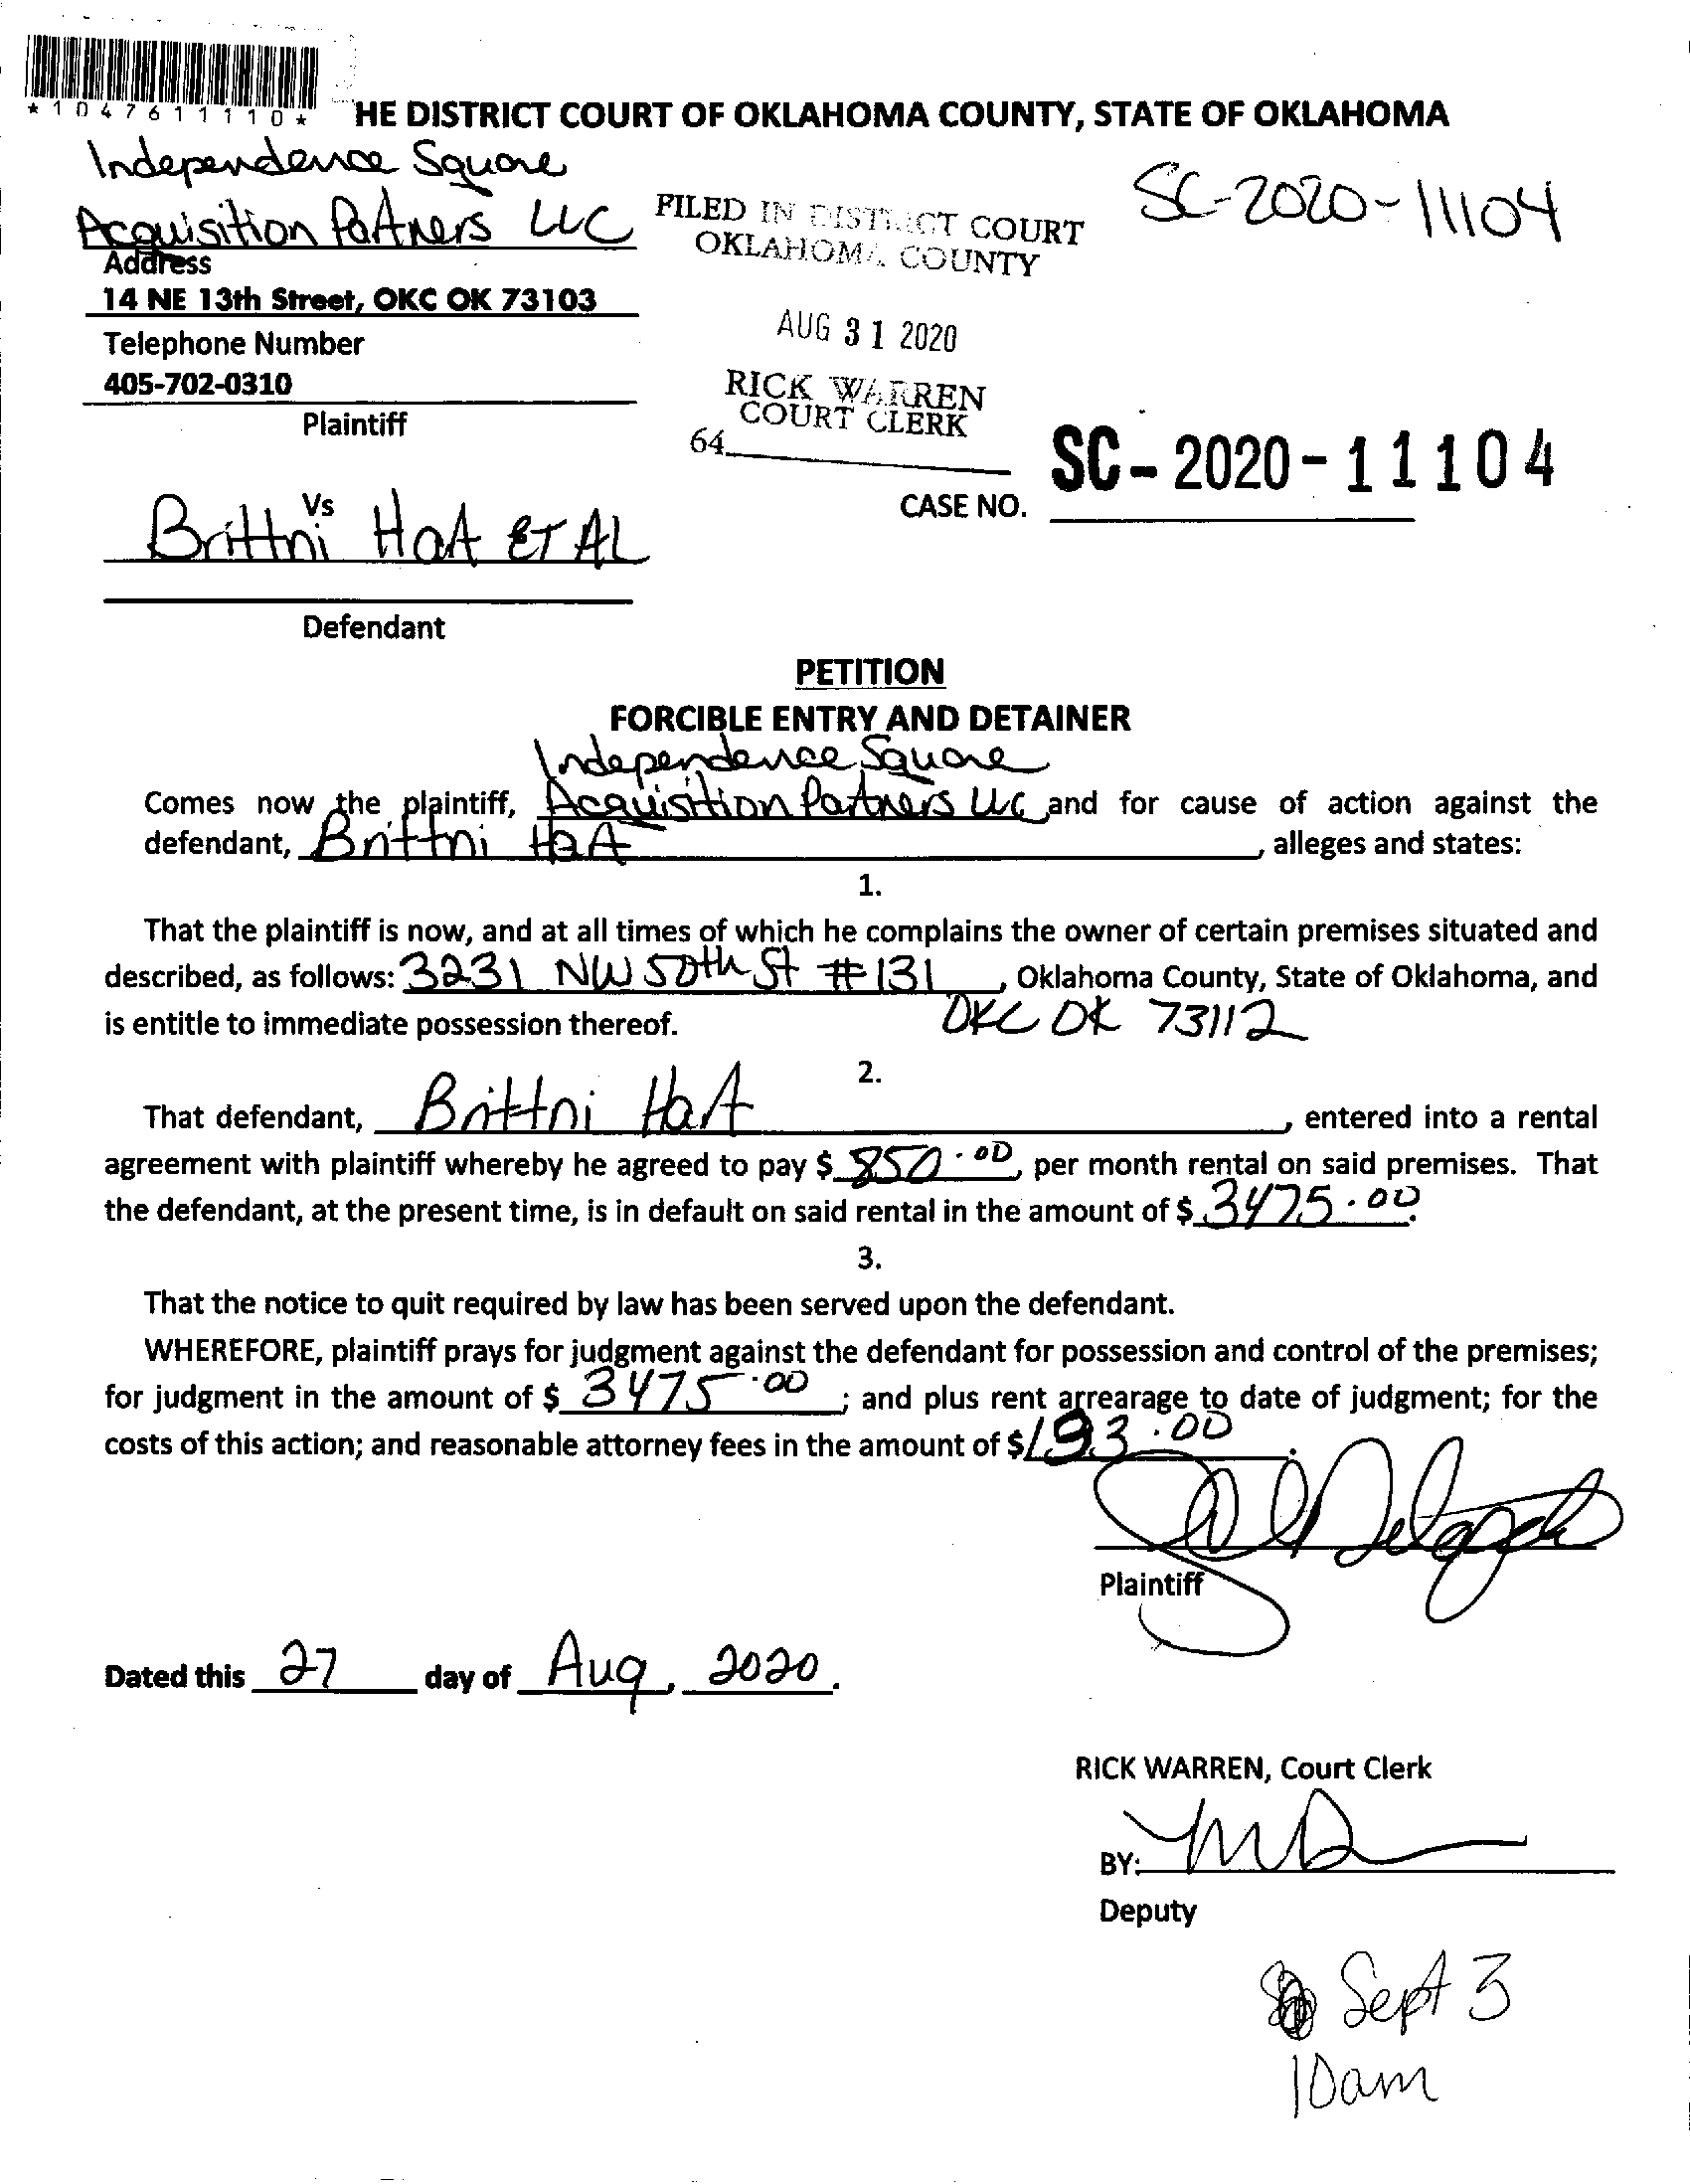 *1047611110*
HE DISTRICT COURT OF OKLAHOMA COUNTY, STATE OF OKLAHOMA
Independence Square
Acquisition Partners LLC
SC-2020-11104
FILED IN DISTRICT COURT
OKLAHOMA COUNTY
Address
14 NE 13th Street, OKC OK 73103
AUG 31 2020
Telephone Number
405-702-0310
RICK WARREN
COURT CLERK
Plaintiff
64
SC-2020-11104
CASE NO.
Vs
Brittni Hart ET AL
Defendant
PETITION
FORCIBLE ENTRY AND DETAINER
Independence Square
Comes now the plaintiff, Acquisition Partners LLC and for cause of action against the
defendant, Brittni Hart, alleges and states:
1.
That the plaintiff is now, and at all times of which he complains the owner of certain premises situated and
described, as follows: 3231 NW 50th St #131, Oklahoma County, State of Oklahoma, and
is entitle to immediate possession thereof. OKC OK 73112
2.
That defendant, Brittni Hart, entered into a rental
agreement with plaintiff whereby he agreed to pay $ 850.00, per month rental on said premises. That
the defendant, at the present time, is in default on said rental in the amount of $ 3475.00.
3.
That the notice to quit required by law has been served upon the defendant.
WHEREFORE, plaintiff prays for judgment against the defendant for possession and control of the premises;
for judgment in the amount of $ 3475.00; and plus rent arrearage to date of judgment; for the
costs of this action; and reasonable attorney fees in the amount of $193.00.
Plaintiff
Dated this 27 day of Aug, 2020.
RICK WARREN, Court Clerk
BY:
Deputy
Sept 3
10am